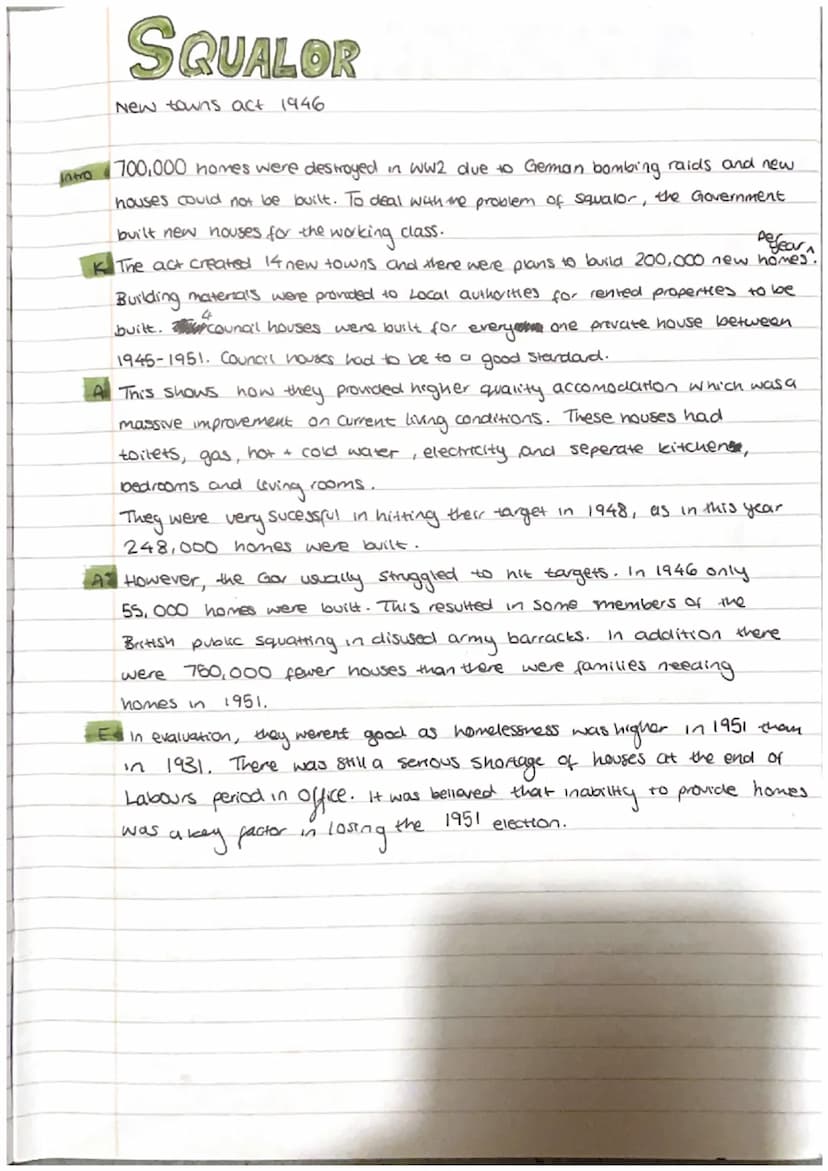 SQUALOR
New towns act 1946
Intro 700,000 homes were destroyed in WW2 due to German bombing raids and new
houses could not be built. To deal with the problem of squalor, the Government
built new houses for the working class.
K The act created 14 new towns and there were plans to build 200,000 new homes per year.
Building materials were provided to Local authorities for rented properties to be
built. 4 council houses were built for every one private house between
1945-1951. Council houses had to be to a good standard.
A This shows how they provided higher quality accomodation which was a
massive improvement on current living conditions. These houses had
toilets, gas, hot + cold water, electricity and seperate kitchens,
bedrooms and living rooms.
They were very sucessful in hitting their target in 1948, as in this year
248,000 homes were built.
A- However, the Gov usually struggled to hit targets. In 1946 only
55,000 homes were built. This resulted in some members of the
British public squatting in disused army barracks. In addition there
were 750,000 fewer houses than there were families needing
homes in 1951.
E In evaluation, they werent good as homelessness was higher in 1951 than
in 1931. There was still a serious shortage of houses at the end of
Labours period in office. It was believed that inability to provide homes
was a key factor in losing the 1951 election.